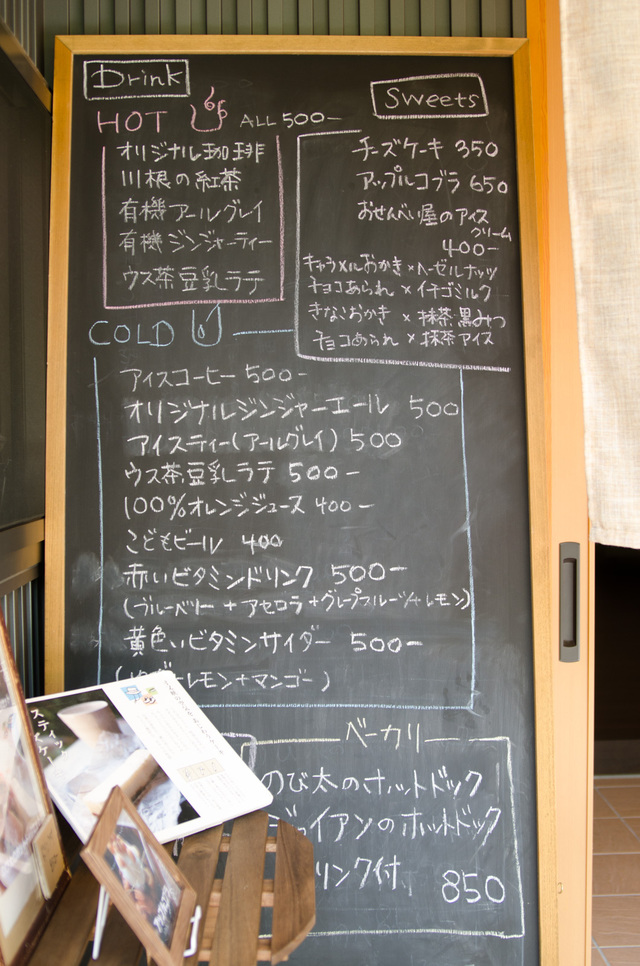 Drink
HOT ALL 500-
オリジナル珈琲
川根の紅茶
有機アールグレイ
有機ジンジャーティー
ウス茶豆乳ラテ
Sweets
チーズケーキ 350
アップルコブラ 650
おせんべい屋のアイス
クリーム
400-
キャラメルおかき×ヘーゼルナッツ
チョコあられ×イチゴミルク
きなこおかき×抹茶黒みつ
チョコあられ×抹茶アイス
COLD
アイスコーヒー 500-
オリジナルジンジャーエール 500
アイスティー(アールグレイ) 500
ウス茶豆乳ラテ 500-
100%オレンジジュース 400-
こどもビール 400
赤いビタミンドリンク 500-
(ブルーベリー+アセロラ+グレープフルーツ+レモン)
黄色いビタミンサイダー 500-
レモン+マンゴー)
ベーカリー
のび太のホットドック
ジャイアンのホットドック
リンク付 850
スティック